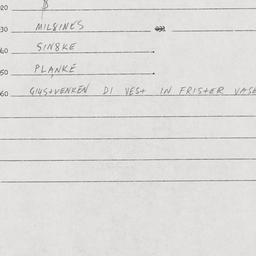 20 B
30 MIL8INES
60 SIN8KE
50 PLANKE
60 GIUSTVENKEN DI VEST IN FRISTER VASE